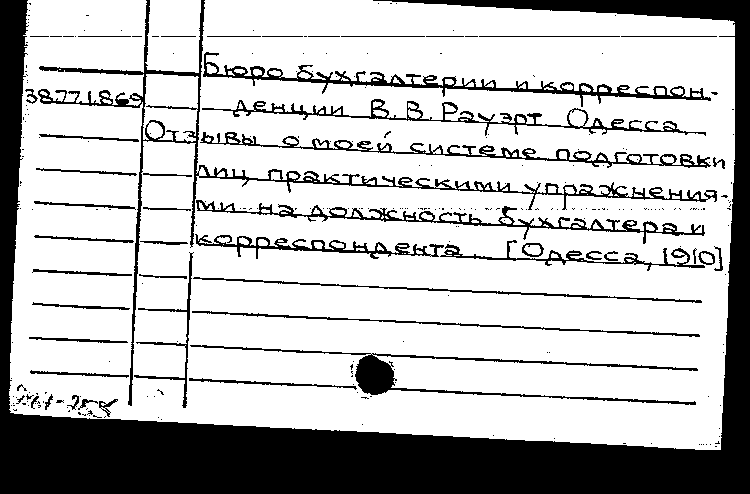 Бюро бухгалтерии и корреспон-
38.77.1.869
денции В. В. Рауэрт. Одесса.
Отзывы о моей системе подготовки
лиц практическими упражнения-
ми на должность бухгалтера и
корреспондента. [Одесса, 1910]